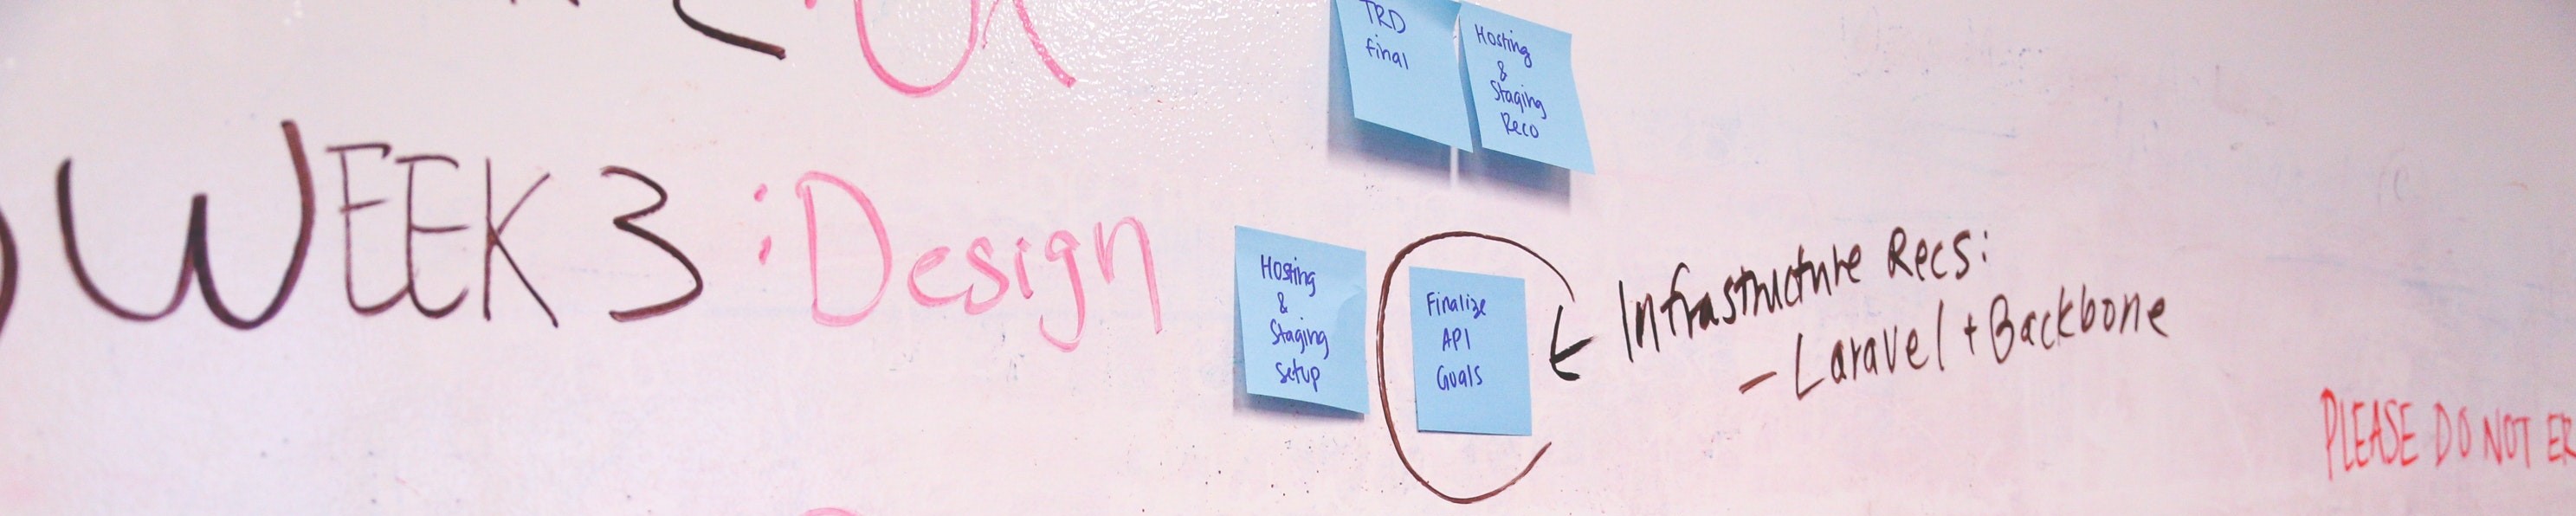 TRD
final
Hosting
&
Staging
Reco
WEEK 3 : Design
Hosting
&
Staging
Setup
Finalize
API
Goals
Infrastructure Recs:
- Laravel + Backbone
PLEASE DO NOT ER